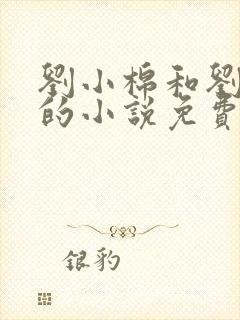 劉小棉和劉
的小說免費
银豹